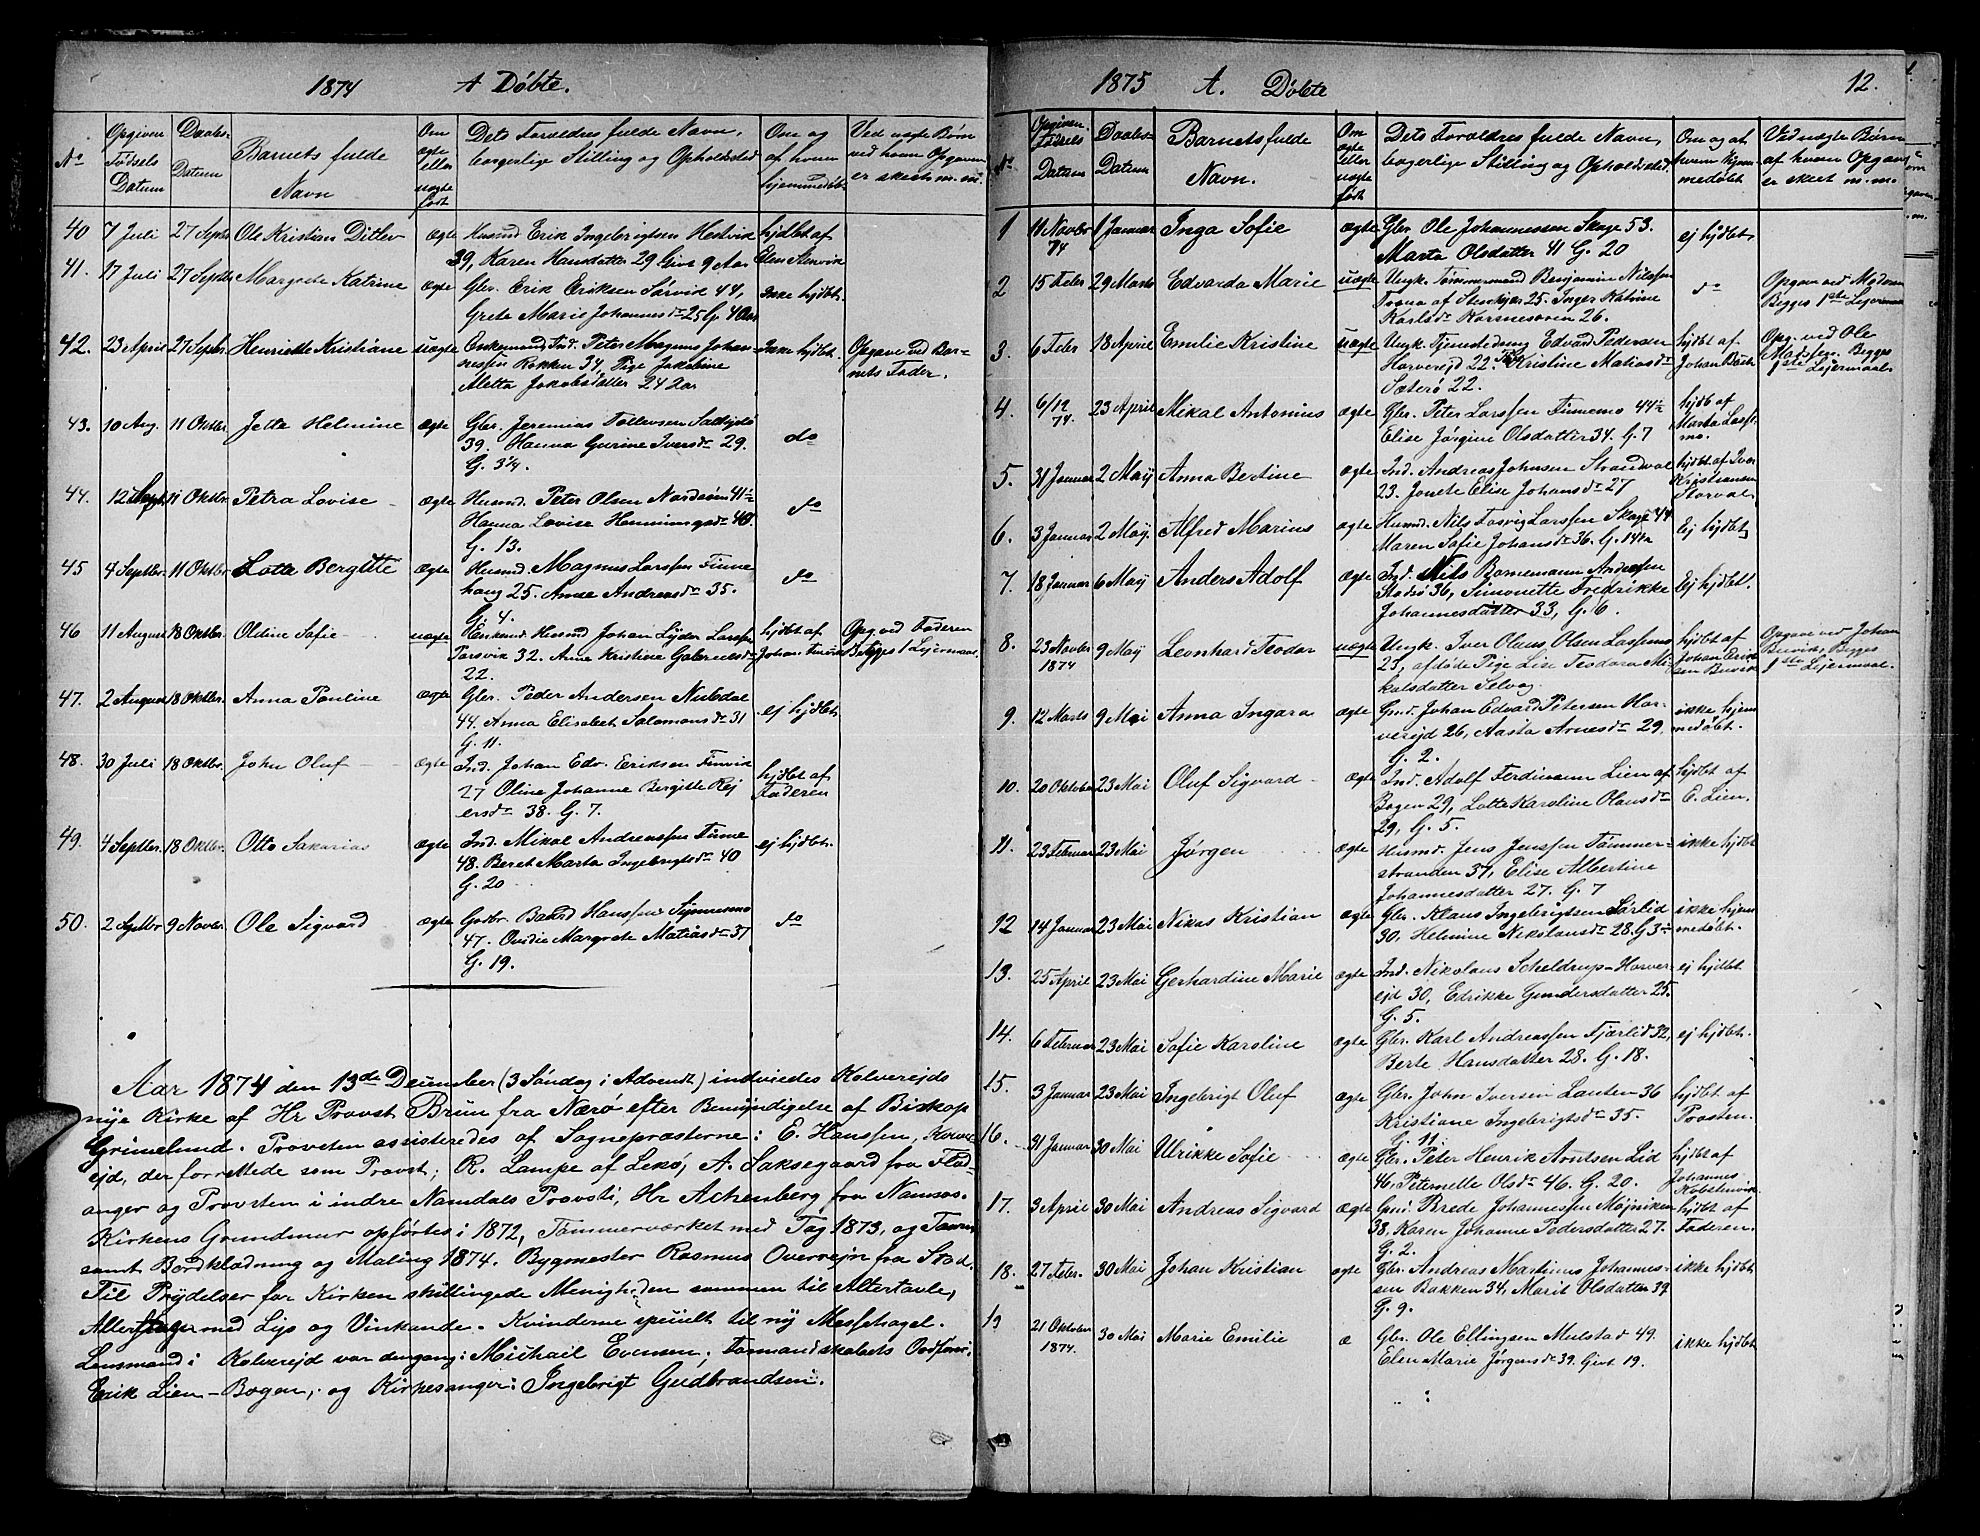 1874 A Døbte.
No
Opgiven Fødsels Datum
Daabs- Datum
Barnets fulde Navn
Om ægte eller uægte født
Dets Forældres fulde Navn, borgerlige Stilling og Opholdssted
Om og af hvem hjemmedøbt
Ved uægte Børn ved hvem Opgaven er skeet m. m.
40 7 Juli 27 Septbr Ole Kristian Ditlev ægte Husmd Erik Ingebrigtsen Hestvik hjdbt af
39, Karen Hansdatter 29 Givt 9 Aar
41. 17 Juli 27 Septbr Margrete Katrine ægte Gbr. Erik Eriksen Sørvik 44, Ikke hjdbt.
Grete Marie Johannesdr 25 G. 4 Aar
42. 23 April 27 Septbr. Henriette Kristiane uægte Enkemand Ind. Peter Magnus Johan- Ikke hjdbt. Opgave ved Bar-
nessen Rokken 34, Pige Jakobine nets Fader.
Aletta Jakobsdatter 24 2ar
43. 10 Aug. 11 Oktbr. Jette Helmine ægte Gbr. Jeremias Tollevsen
39. Hanna Gurine Iversdr 29. do
G. 3¼
44. 12 Septbr 11 Oktbr. Petra Lovise ægte Husmd. Peter Olsen 41½
Hanna Lovise Henningsdr 40. do
G. 13.
45 4 Septbr. 11 Oktbr. Lotte Bergitte ægte Husmd. Magnus Larssen Finne
haug 25. Anne Andreasdr 35. do
G. 4.
46 11 August 18 Oktbr. Oldine Sofie uægte Enkemd Husmd Johan Lyder Larssen hjdbt af Opg. ved Faderen
Torsvik 32. Anne Kristine Gabrielsdr Johan Begges 1 Lejermaal
22.
47. 2 August 18 Oktbr. Anna Pauline ægte Gbr. Peder Andersen Nubdal
44. Anna Elisabet Salomonsdr 31 ej hjdbt.
G. 11.
48. 30 Juli 18 Oktbr. John Oluf ægte Ind. Johan Edv. Eriksen Finvik hjdbt af
27 Oline Johanne Bergitte Rej Faderen
ersdr 38. G. 7.
49. 4 Septbr. 18 Oktbr. Otto Sakarias ægte Ind. Mikal Andreassen Finne ej hjdbt.
48. Beret Marta Ingebrigtsdr 40
G. 20
50. 2 Septbr 9 Novbr. Ole Sigvard ægte Gbr. Baard Hanssen do
47. Ovidie Margrete Matiasdr 37
G. 19.
Aar 1874 den 13de December (3 Søndag i Advendt) indviedes Kolvereids
nye Kirke af Hr Provst Brun fra Nærø efter Bemyndigelse af Biskop
Grimelund. Provsten assisteredes af Sognepræsterne: E. Hanssen, Kolve-
ejd, der forrettede som Provst; R. Lampe af Lekø, A. Saksegaard fra Flad-
anger og Provsten i indre Namdals Provsti, Hr Achenberg fra Namsos.
Kirkens Grundmur opførtes i 1872, Tømmerværket med Tag 1873, og Taarn
samt Bordklædning og Maling 1874. Bygmester Rasmus Overrejn fra Stod.
Til Prydelser for Kirken skillingede Menigheden sammen til Altertavle,
Alterstager med Lys og Vinkande. Kvinderne specielt til ny Messehagel.
Lensmand i Kolverejd var dengang: Michael Evensen; Formandskabets Ordfører:
Erik Lien-Bogen, og Kirkesanger: Ingebrigt Gudbrandsen.
1875 A. Døbte 12.
No
Opgiven Fødsels Datum
Daabs- Datum
Barnets fulde Navn.
Om ægte eller uægte født
Dets Forældres fulde Navn, borgerlige Stilling og Opholdssted.
Om og af hvem hjemmedøbt
Ved uægte Børn af hvem Opgave er skeet m. m.
1 11 Novbr 74 1 Januar Inga Sofie ægte Gbr. Ole Johannessen Skage 53. ej hjdbt.
Marta Olsdatter 41 G. 20
2 15 Febr 29 Marts Edvarda Marie uægte Ungk. Tømmermand Benjamin Nilssen do Opgave ved Moderen
Trana af Stenkjær 25. Inger Katrine Begges 1ste Lejermaal
Karlsdr Horsnesøien 26.
3. 6 Febr 18 April Emilie Kristine uægte Ungk. Tjenestedreng Edvard Pedersen hjdbt af Opg. ved Ole
Horverejd 22. Pige Kristine Matiasdr Johan Begges
Sæterø 22. 1ste Lejermaal
4. 6/12 74. 23 April Mikal Antonius ægte Gbr. Peter Larssen Finnemo 44½ hjdbt af
Elise Jørgine Olsdatter 34. G. 7 Marta
5. 31 Januar 2 Maij Anna Bertine ægte Ind. Andreas Johnsen Strandval hjdbt af Iver
23. Jonete Elise Johansdr 27 Kristiansen Storval
6. 3 Januar 2 Maij Alfred Marius ægte Husmd. Nils Larssen Skage 44 Ej hjdbt
Maren Sofie Johansdr 36. G. 14
7. 18 Januar 6 Maij Anders Adolf ægte Ind. Nils Bornemann Andersen Ej hjdbt.
36, Simonette Fredrikke
Johannesdatter 33, G. 6.
8. 23 Novbr 1874 9 Maij Leonhard Teodor uægte Ungk. Iver Olaus Olsen hjdbt af Opgave ved Johan
23, afdøde Pige Lise Teodora Mi- Johan Erik- Buvik, Begges
kalsdatter Selvog. sen Buvik 1ste Lejermaal.
9. 12 Marts 9 Mai Anna Ingara ægte Grd. Johan Edvard Petersen Hor- ikke hjem
verejd 26, Aasta Arnesdr 29. medøbt.
G. 2.
10. 20 Oktober 23 Mai Oluf Sigvard ægte Ind. Adolf Ferdinann Lien af hjdbt af
Bogen 29, Lotte Karoline Olausdr E. Lien.
29, G. 5.
11. 23 Februar 23 Mai Jørgen ægte Husmd. Jens Jenssen Tømmer- ikke hjdbt
stranden 37, Elise Albertine
Johannesdatter 27. G. 7
12 14 Januar 23 Mai Nikas Kristian ægte Gbr. Klaus Ingebrigtsen Sørlid ikke hjem
30. Helmine Nikolausdr 28. G 3 medøbt.
13. 25 April 23 Mai Gerhardine Marie ægte Ind. Nikolaus Scheldrup-Horver- ej hjdbt
ejd 30, Edrikke Gundersdatter 25.
G. 5.
14. 6 Februar 23 Mai Sofie Karoline ægte Gbr. Karl Andreassen Fjærlid 32, ej hjdbt.
Berte Hansdatter 28. G. 18.
15. 3 Januar 23 Mai Ingebrigt Oluf ægte Gbr. John Iversen Lauten 36 hjdbt af
Kristiane Ingebrigtsdr 35. Provsten.
G. 11.
16. 31 Januar 30 Mai Ulrikke Sofie ægte Gbr. Peter Henrik Arntsen Lid hjdbt af
46. Peternelle Olsdr 46. G. 20. Johannes
17. 3 April 30 Mai Andreas Sigvard ægte Brede Johannessen hjdbt af
38, Karen Johanne Pedersdatter 27. Faderen.
G. 2.
18. 27 Febr. 30 Mai Johan Kristian ægte Gbr. Andreas Martinus Johannes- ikke hjdbt
sen Bakken 34, Marit Olsdatter 39
G. 9.
19 21 Oktober 1874. 30 Mai Marie Emilie æ Gbr. Ole Ellingsen Mulstad 49. ikke hjdbt
Elen Marie Jørgensdr 39. Givt 19.